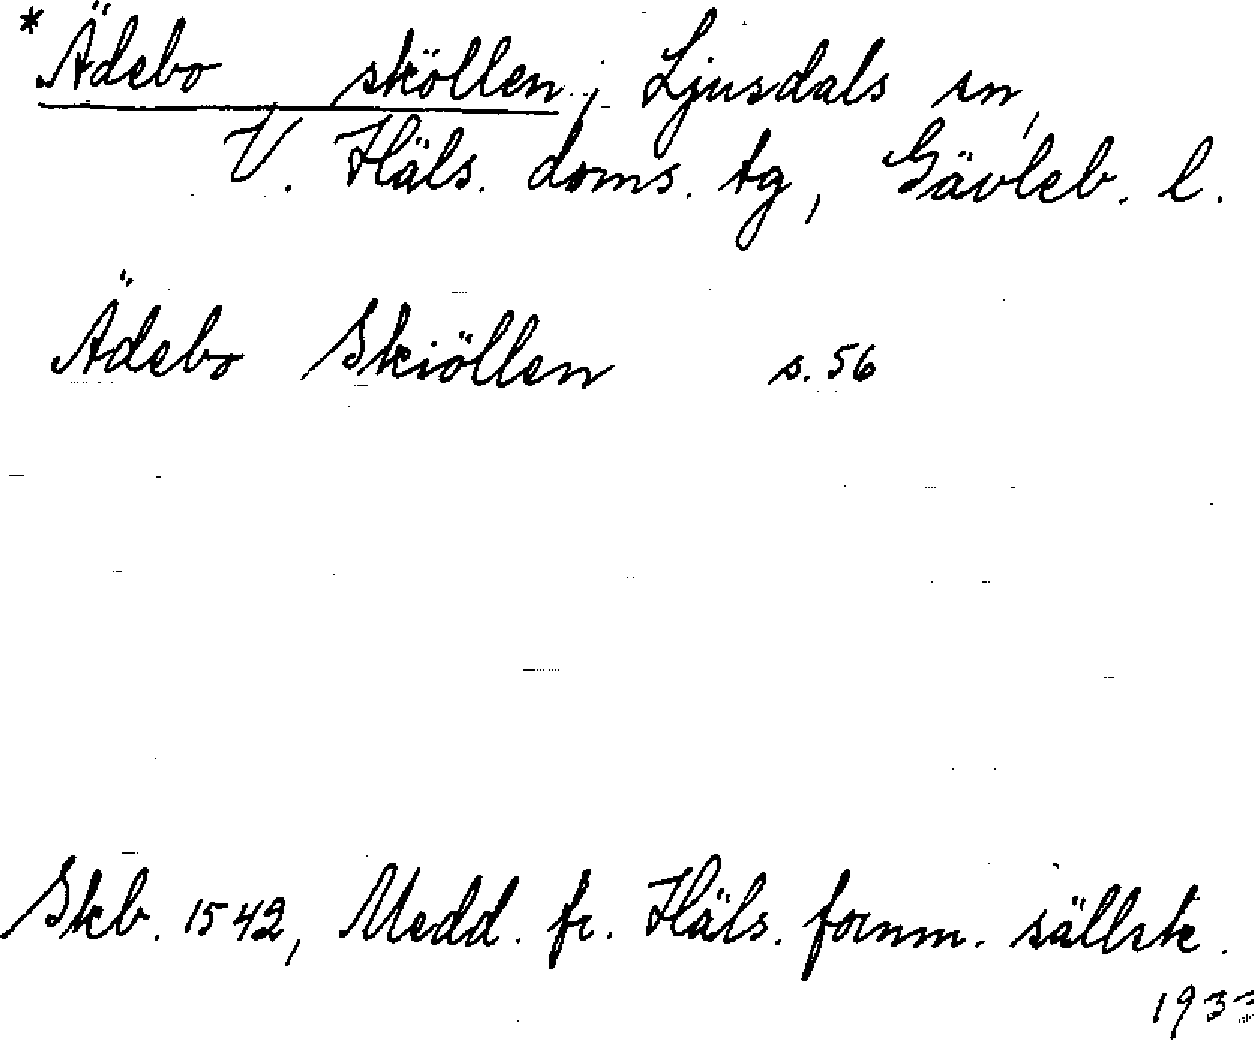 *Ädebo sköllen, Ljusdals sn,
V. Häls. doms. tg, Gävleb. l.
Ädebo Skiöllen s. 56
Skb. 1542, Medd. fr. Häls. fornm. sällsk.
1933